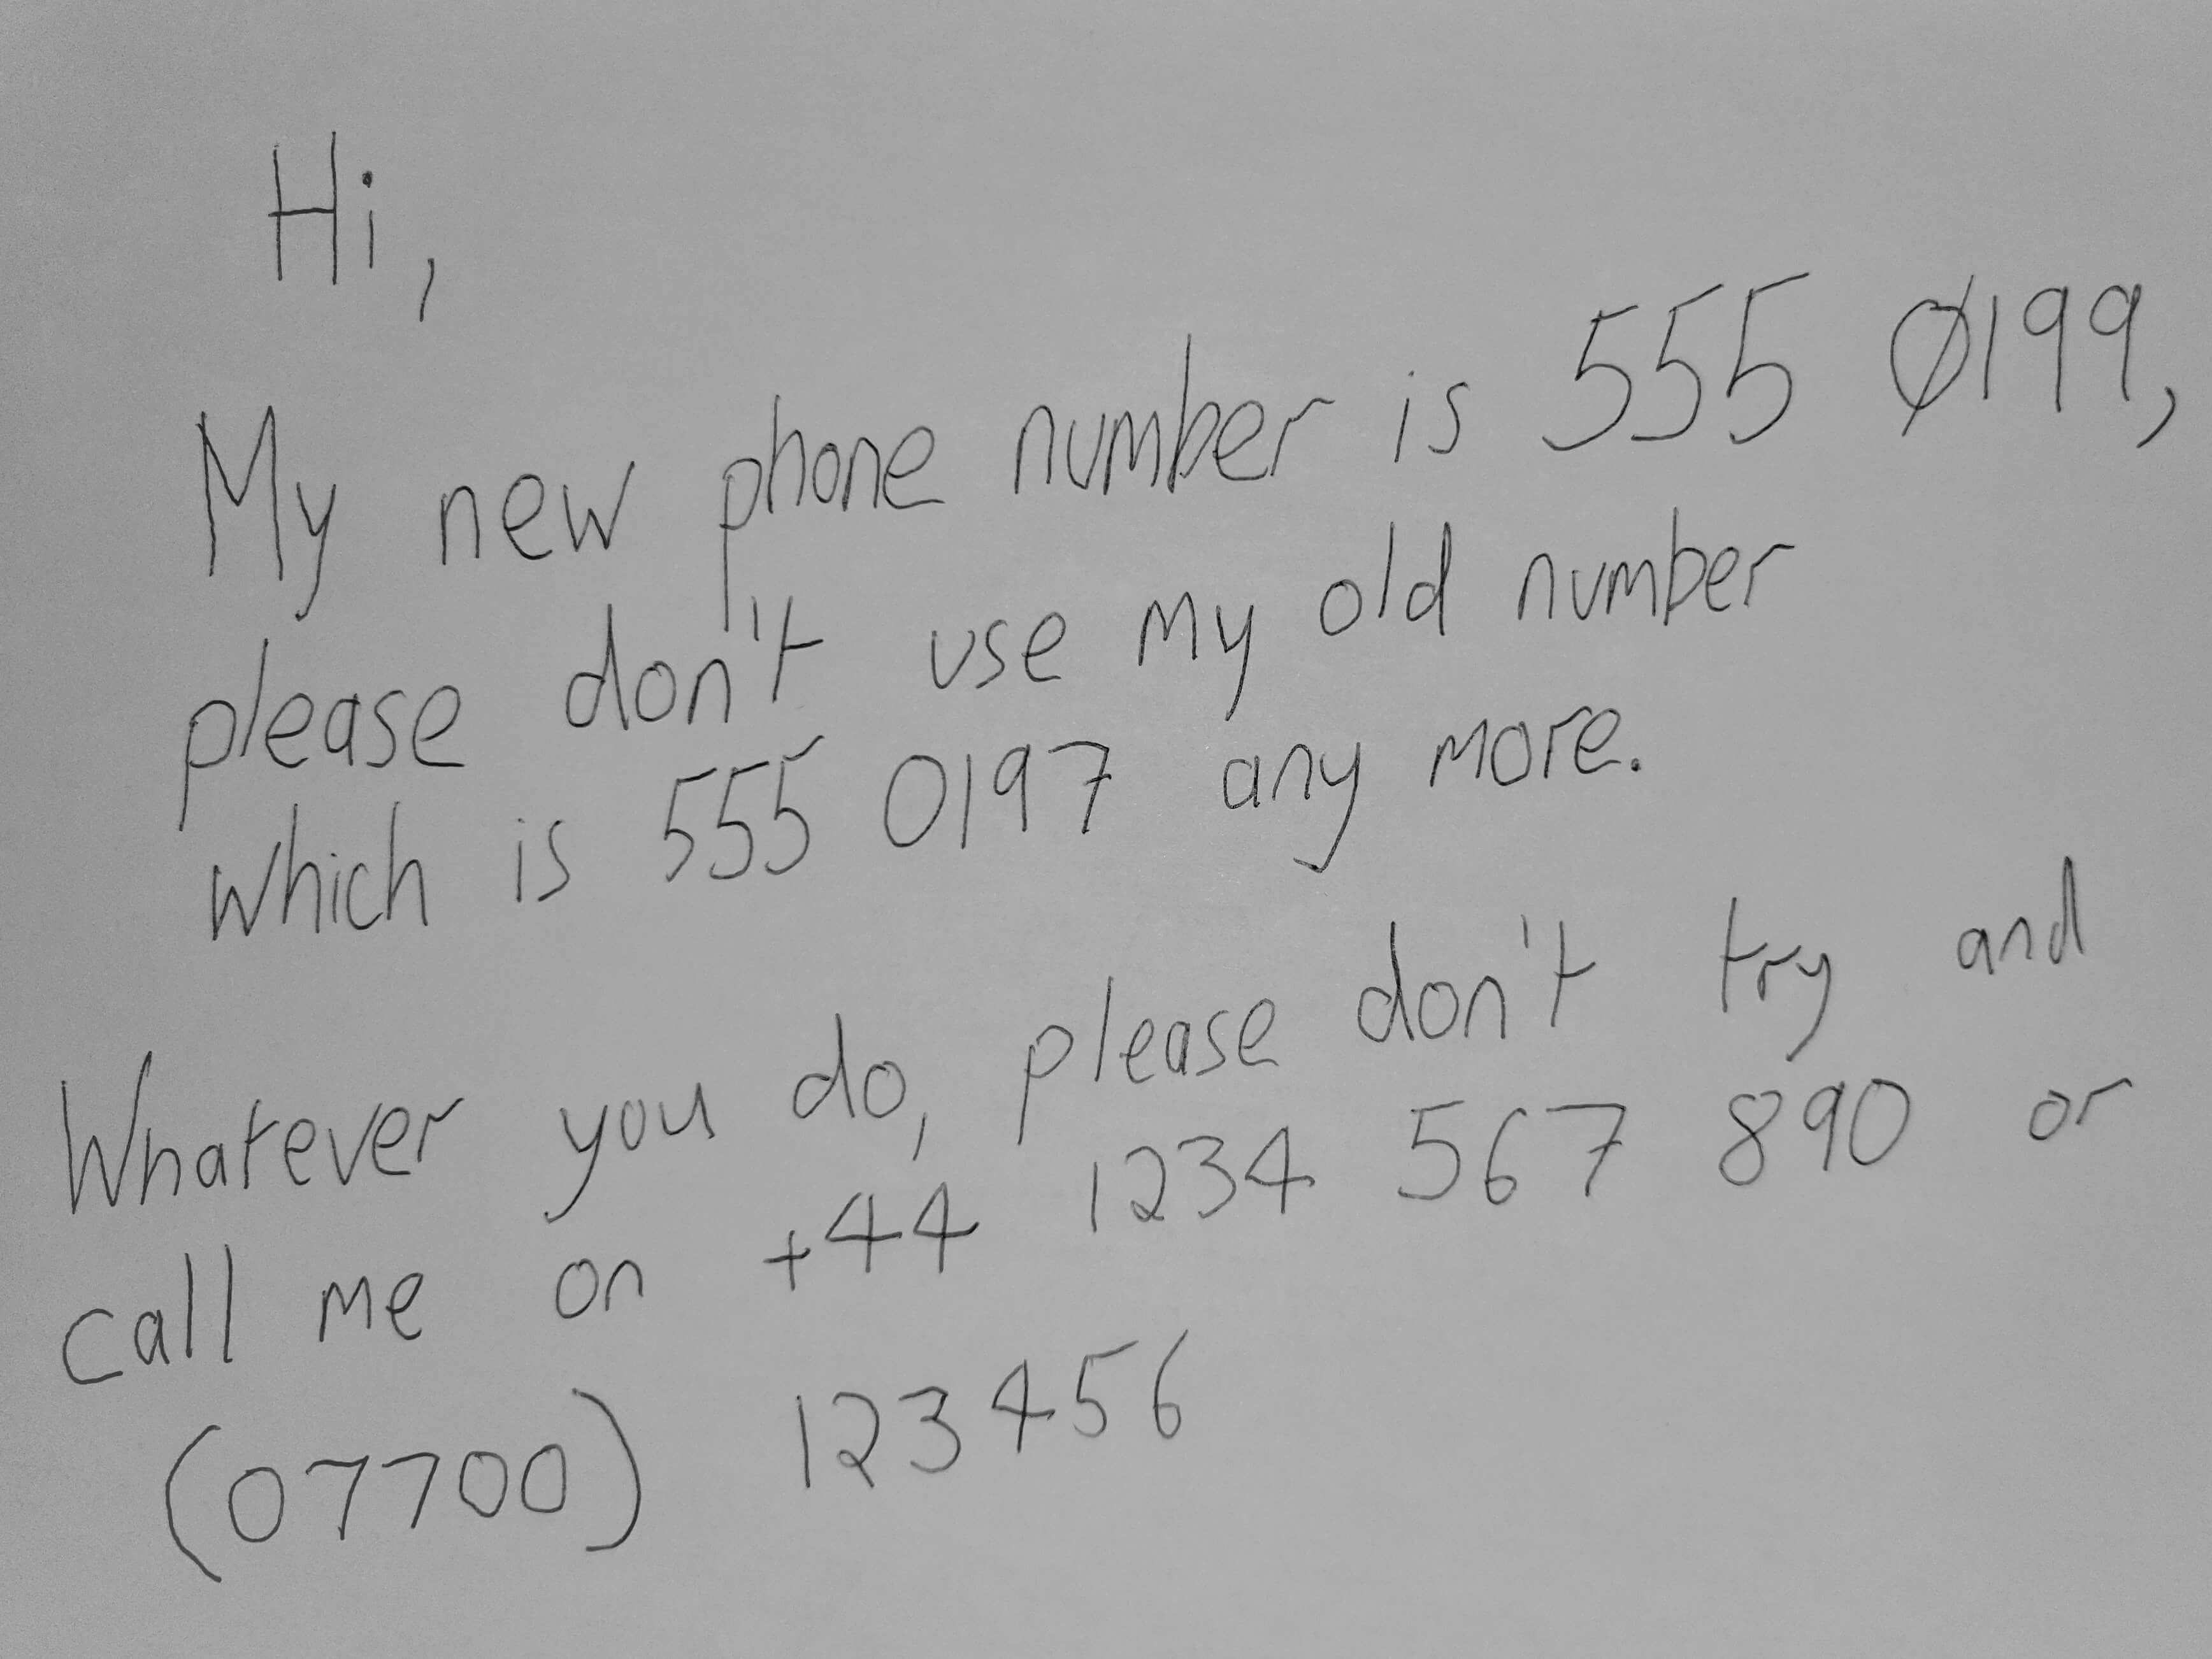 Hi,
My new phone number is 555 0199,
please don't use my old number
which is 555 0197 any more.
Whatever you do, please don't try and
call me on +44 1234 567 890 or
(07700) 123456